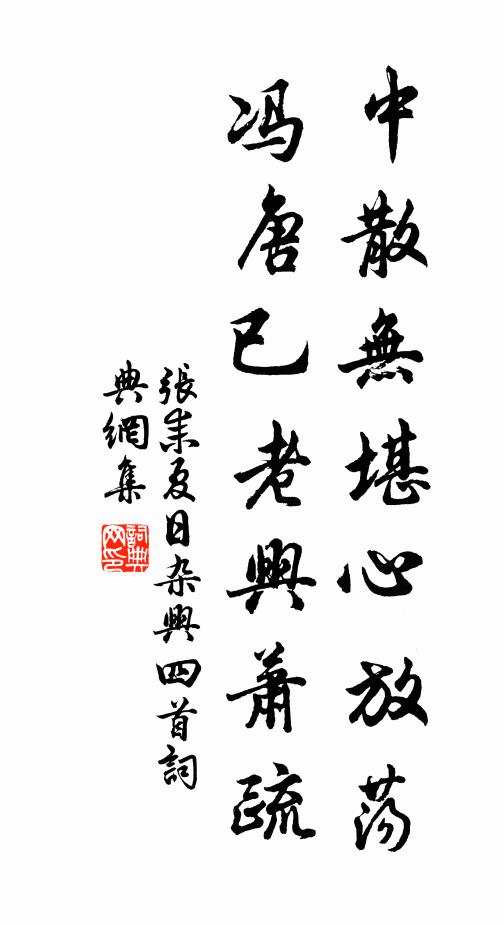 中散無堪心放蕩
冯唐已老興蕭疏
張耒夏日杂興四首詞
典網集
詞典网印